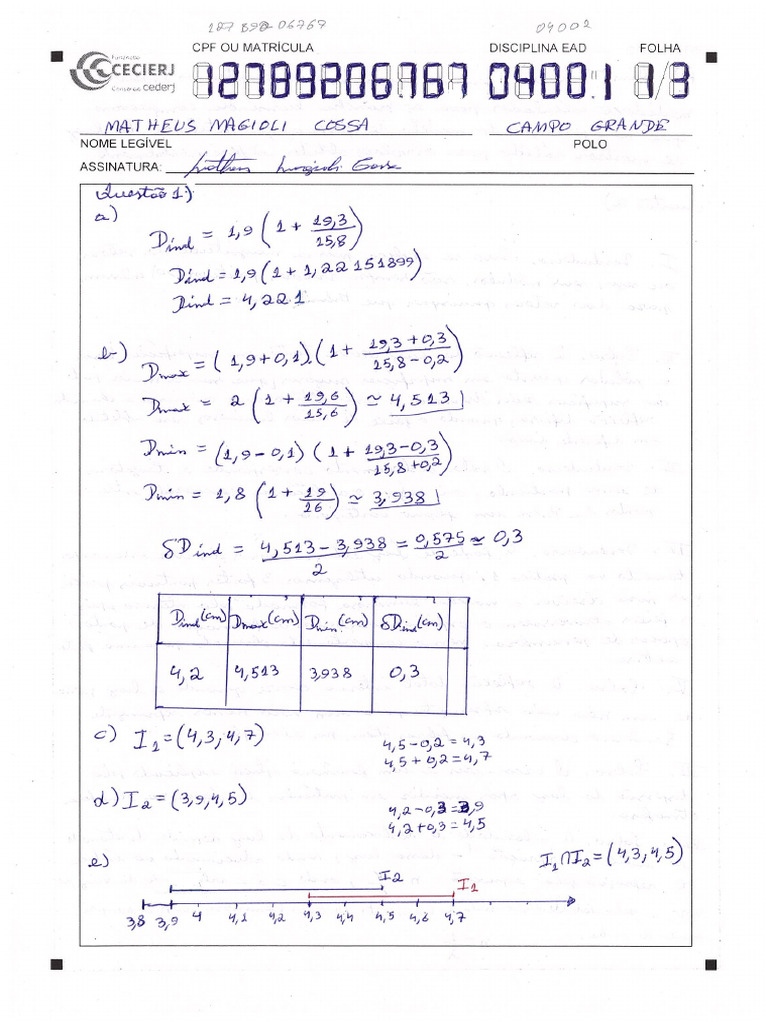 127 892 06767 04002
CPF OU MATRÍCULA DISCIPLINA EAD FOLHA
Fundação
CECIERJ
Consórcio cederj
12789206767 0400.1 1/3
MATHEUS MAGIOLI COSSA CAMPO GRANDE
NOME LEGÍVEL POLO
ASSINATURA: Matheus Magioli Cossa
Questão 1)
a)
Dind = 1,9 (1 + 19,3/15,8)
Dind = 1,9 (1 + 1,22151899)
Dind = 4,221
b) Dmax = (1,9+0,1).(1 + 19,3+0,3/15,8-0,2)
Dmax = 2 (1 + 19,6/15,6) ≃ 4,513
Dmin = (1,9-0,1) (1 + 19,3-0,3/15,8+0,2)
Dmin = 1,8 (1 + 19/16) ≃ 3,938
δDind = 4,513-3,938/2 = 0,575/2 ≃ 0,3
Dind(cm) Dmax(cm) Dmin(cm) δDind(cm)
4,2 4,513 3,938 0,3
c) I1 = (4,3; 4,7)
4,5-0,2 = 4,3
4,5+0,2 = 4,7
d) I2 = (3,9, 4,5)
4,2-0,3 = 3,9
4,2+0,3 = 4,5
e)
I1∩I2 = (4,3; 4,5)
I2
I1
3,8 3,9 4 4,1 4,2 4,3 4,4 4,5 4,6 4,7